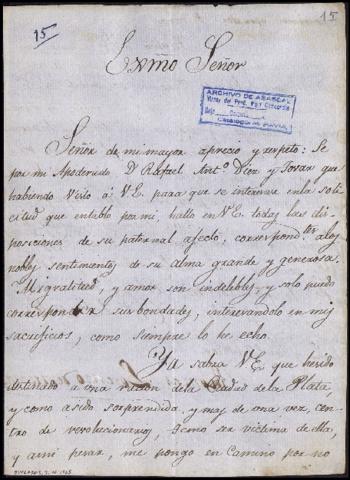 15
15
Exmo Señor
ARCHIVO DE ABASCAL
Señor de mi mayor aprecio y respeto: Se
por mi Apoderado D Rafael Anto Diez y Tovar que
habiendo Visto á V.E. para que se interese en la soli
citud que entablo por mi hallo en V.E. todas las dis
posiciones de su paternal afecto, correspondtes a los
nobles sentimientos de su alma grande y generosa.
Mi gratitud, y amor son indelebles y solo puedo
corresponder sus bondades, interesandolo en mis
sacrificios, como siempre lo he echo.
Ya sabra V.E. que he sido
destinado a una de la Ciudad de la Plata,
y como a sido sorprendida, y mas de una vez cen
tro de revolucionarios, y como ser victima de ella,
y a mi pesar, me pongo en Camino por no